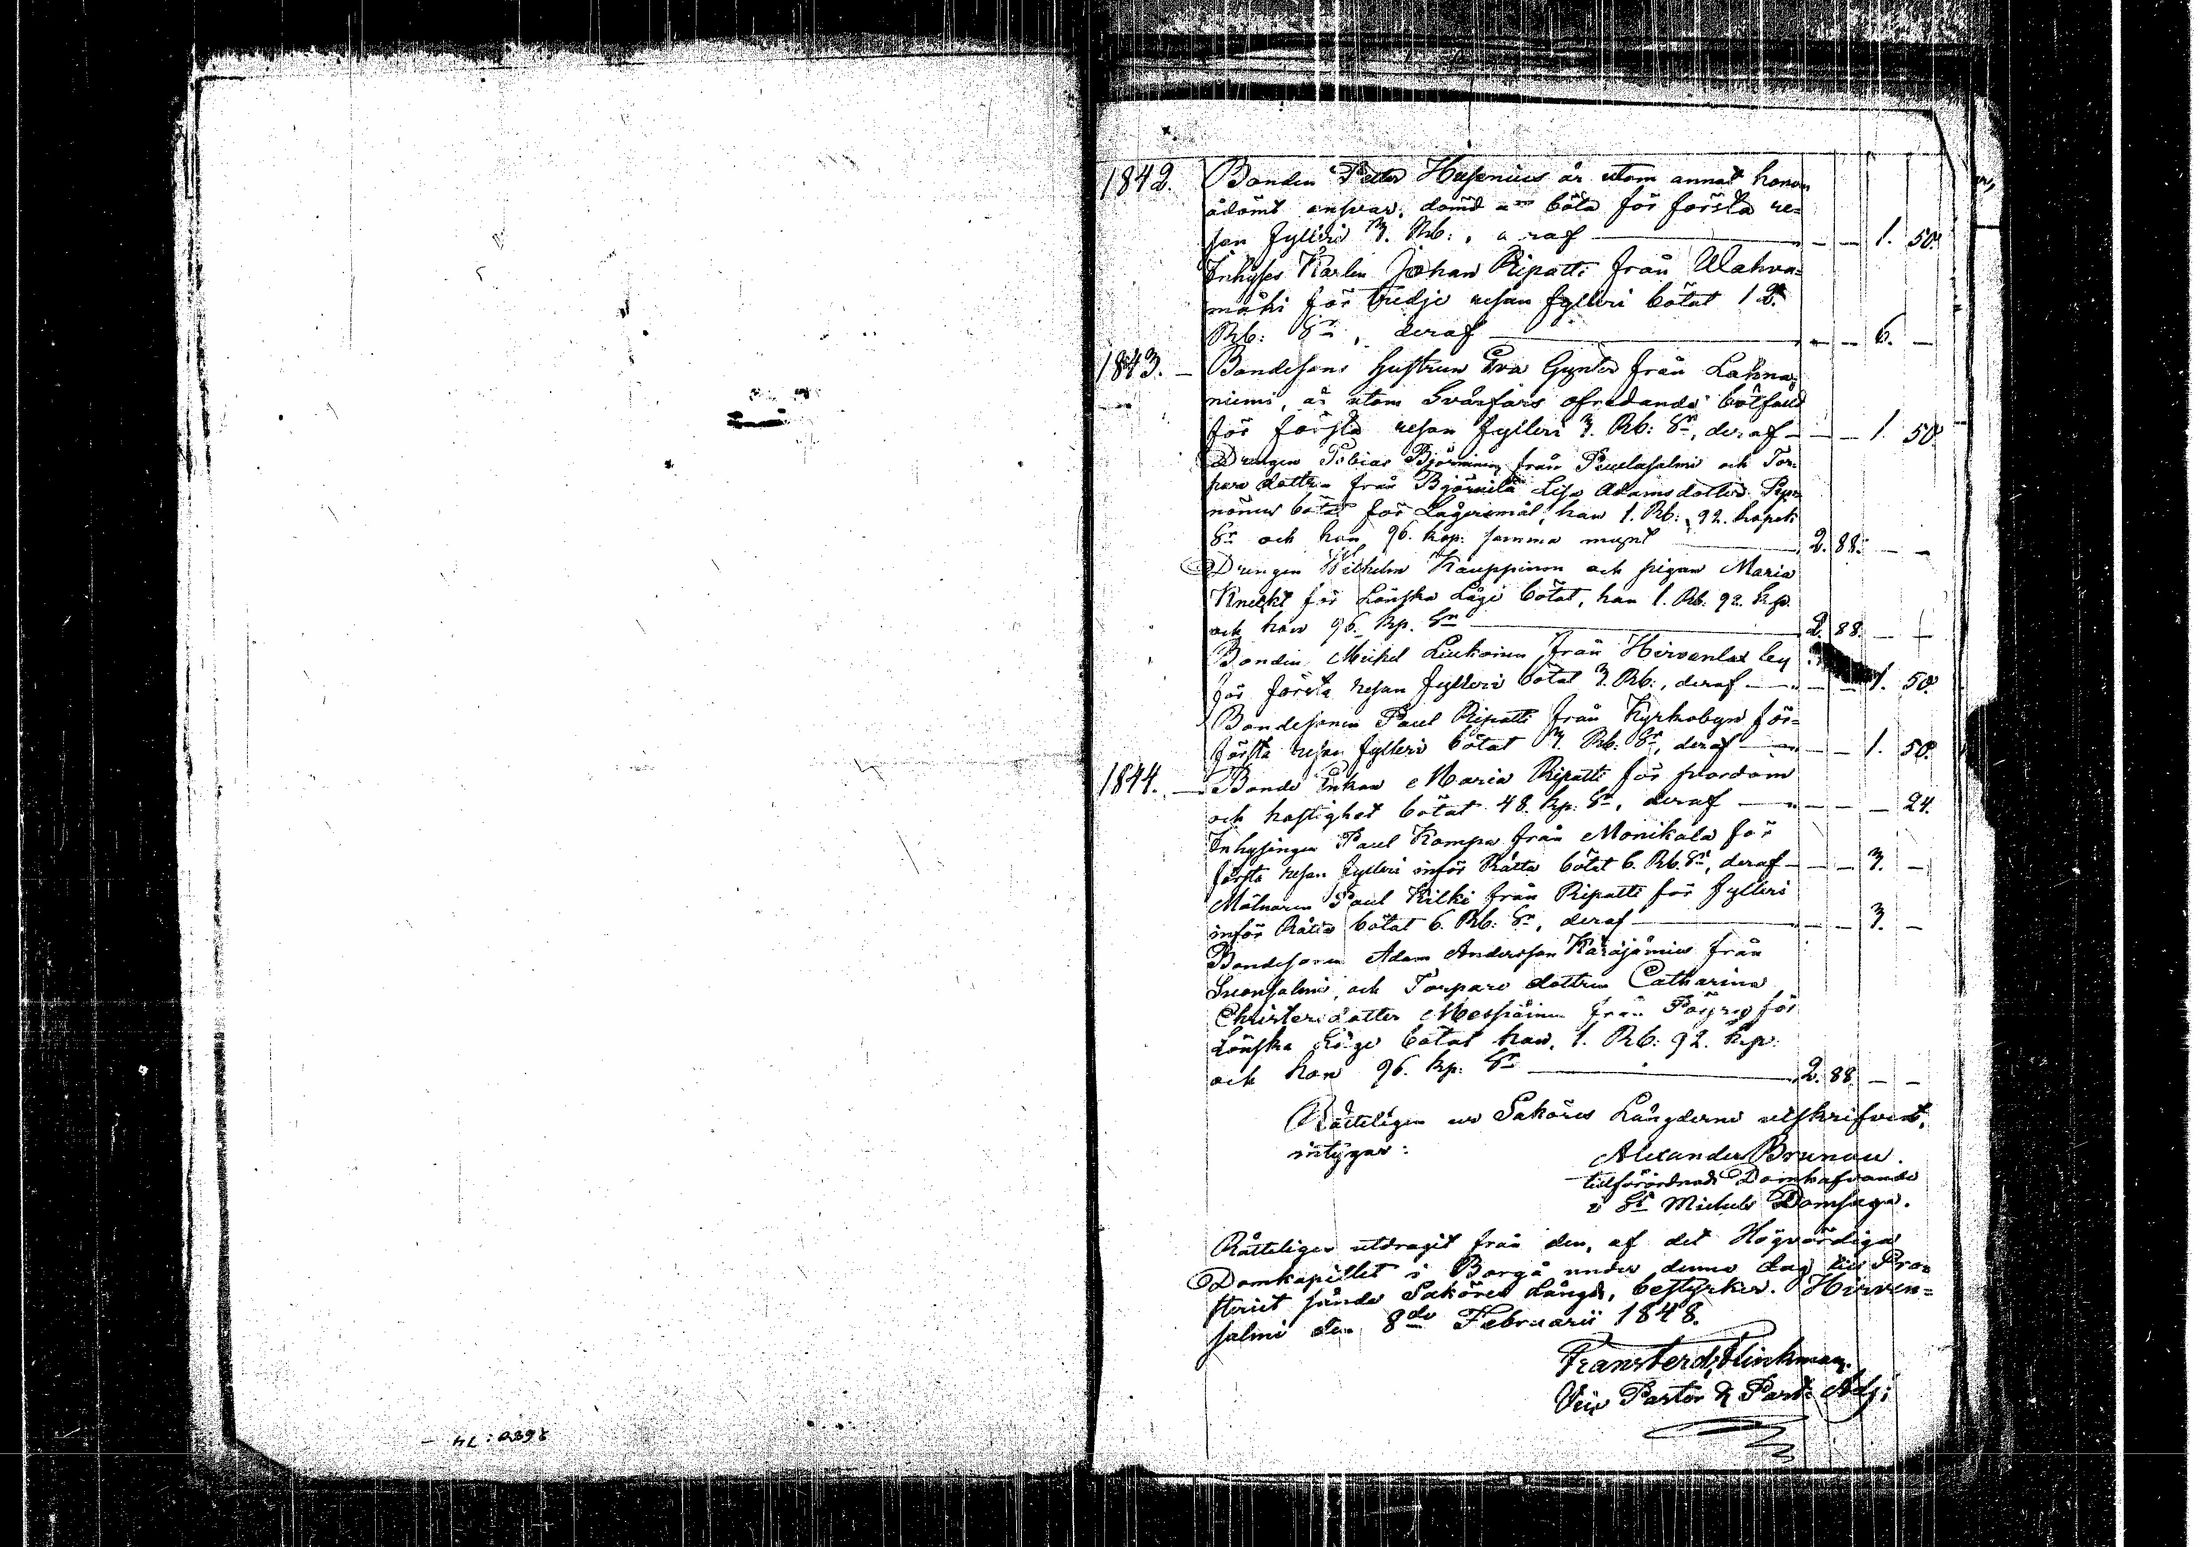 1842. Bonden Petter Husenius är utom annat honom
ådömt ansvar, dömd att böta för första re=
san fylleri 3. Rb:, deraf — — — 1. 50.
Inhyses Karlen Johan Ripatti från Wahva=
mäki för tredje resan fylleri bötat 12.
Rb: Sr, deraf — — — 6. —
1843. — Bondesons hustrun Eva Gynter från Lahna=
niemi, är utom Svärfars ofredande bötfäld
för första resan fylleri 3. Rb: Sr, deraf — — — 1. 50.
Drengen Tobias Björninen från Puulasalmi och Tor=
pare dottren från Björnilä Lisa Adamsdotter
bötat för Lägersmål, han 1. Rb: 92. kopek
Sr och hon 96. kop: samma mynt — 2. 88. — —
Drengen Wilhelm Kauppinen och pigan Maria
Kneckt för Lönska Läge bötat, han 1. Rb. 92. kp.
och hon 96. kp. Sr — 2. 88. — —
Bonden Mikel Liukoinen från Hirvenlax by
för första resan fylleri bötat 3. Rb:, deraf — — — 1. 50.
Bondesonen Paul Ripatti från Kyrkobyn för=
första resan fylleri bötat 3. Rb: Sr, deraf — — — 1. 50.
1844. — Bonde Enkan Maria Ripatti för svordom
och hastighet bötat 48. kp: Sr, deraf — — — — 24.
Inhysingen Paul Kompa från Monikala för
första resan fylleri inför Rätta bötat 6. Rb. Sr, deraf — — — 3. —
Mölnaren Paul Kilki från Ripatti för fylleri
inför Rätta bötat 6. Rb: Sr, deraf — — — 3. —
Bondesonen Adam Andersson Käräjämies från
Suonsalmi, och Torpare dottren Catharina
Christersdotter från för
Lönska Läge bötat han, 1. Rb: 92. kp:
och hon 96. kp: Sr — 2. 88 — —
Rätteligen ur Saköres Längderne utskrifvet,
intygar:
Alexander Brunou.
tillförordnad Domhafvande
i St Michels Domsaga.
Rätteligen utdragit från den, af det Högvördiga
Domkapitlet i Borgå under denne dag till Pro=
steriet sände Saköres Längd, bestyrker. Hirven=
salmi den 8de Februarii 1848.
Frans Ferd. Flinkman.
Vice Pastor & Past: Adj:
2680:74 —